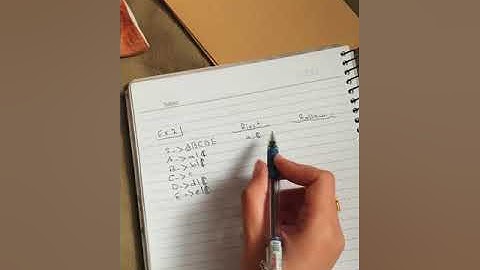 Ex.2
First Follow
S->ABCDE a,€
A->a|€
B->b|€
C->c
D->d|€
E->e|€